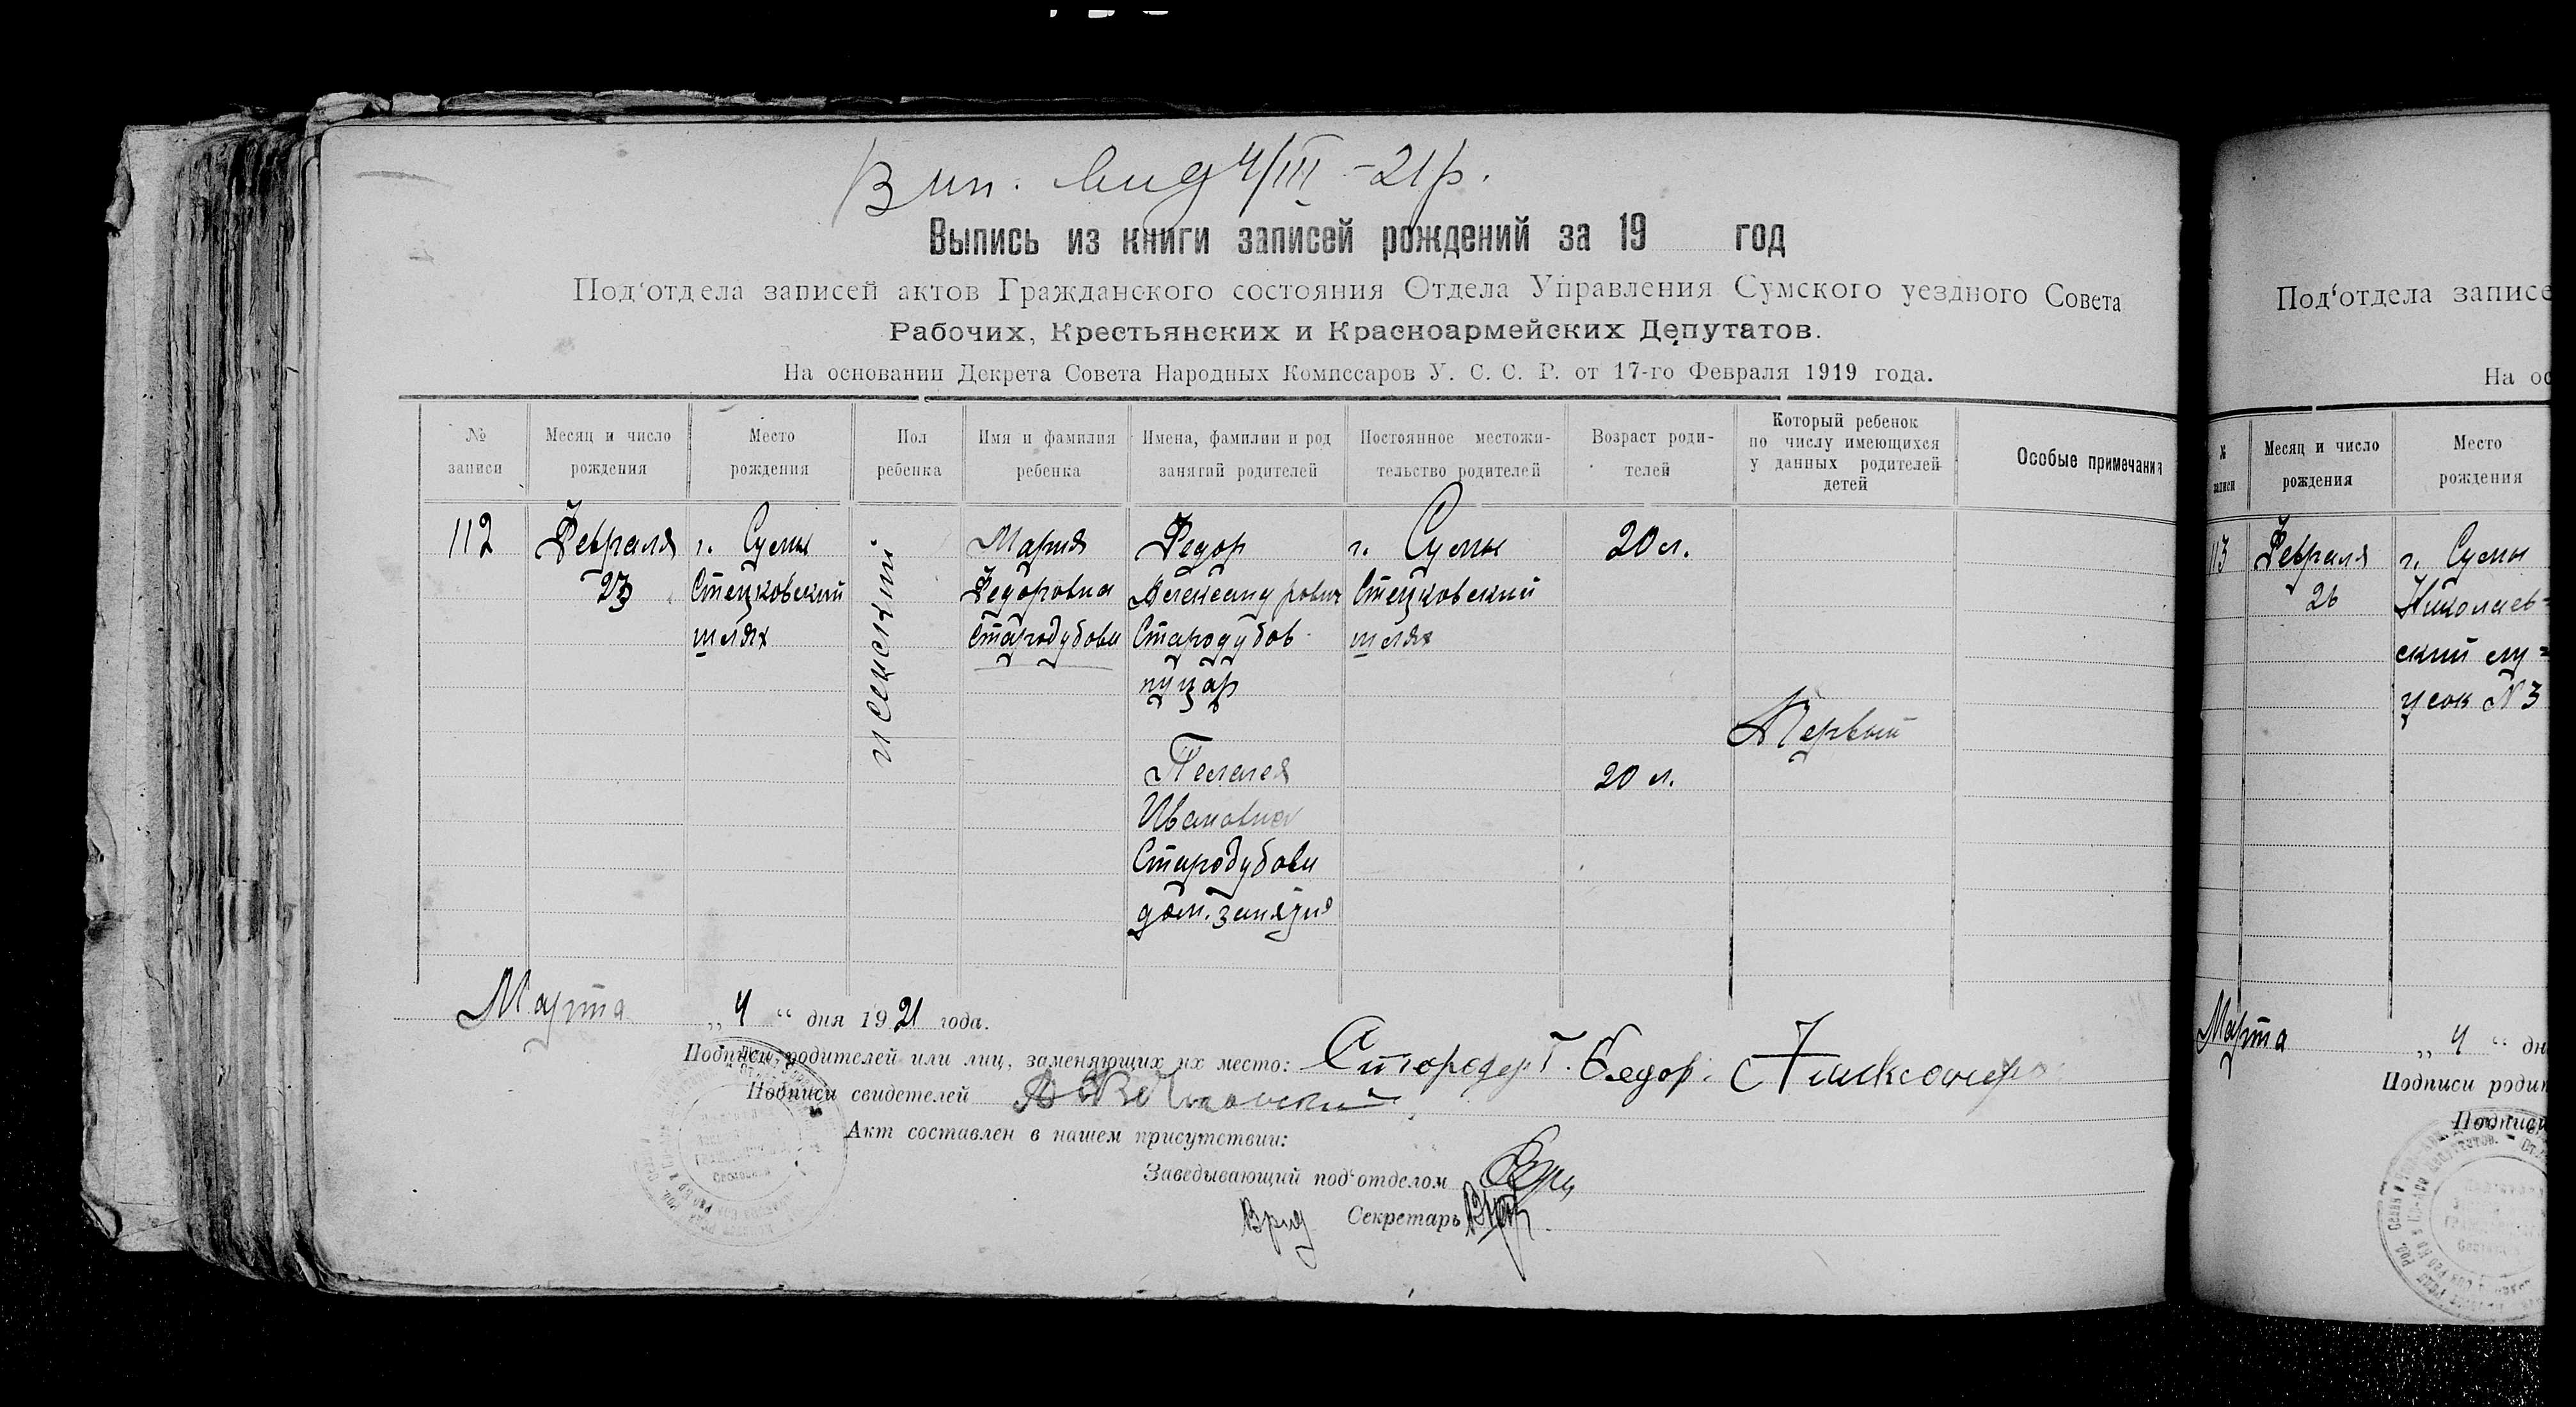 Вип. вид 4/III -21 р.
Выпись из книги записей рождений за 19 год
Под‘отдела записей актов Гражданского состояния Отдела Управления Сумского уездного Совета
Рабочих, Крестьянских и Красноармейских Депутатов.
На основании Декрета Совета Народных Комиссаров У. С. С. Р. от 17-го Февраля 1919 года.
№ записи
Месяц и число рождения
Место рождения
Пол ребенка
Имя и фамилия ребенка
Имена, фамилии и род занятий родителей
Постоянное местожительство родителей
Возраст родителей
Который ребенок по числу имеющихся у данных родителей детей
Особые примечания
112
Февраля
23
г. Сумы
Стецковский
шлях
женский
Мария
Федоровна
Стародубова
Федор
Александрович
Стародубов
г. Сумы
Стецковский
шлях
20 л.
Первый
Пелагея
Ивановна
Стародубова
дом. занятия
20 л.
Марта „4“ дня 1921 года.
Подписи родителей или лиц, заменяющих их место:
Подписи свидетелей
Акт составлен в нашем присутствии:
Заведывающий под‘отделом
Врид Секретарь
Под‘отдела записе
На ос
№ записи
Месяц и число рождения
Место рождения
113
Февраля
26
г. Сумы
Николаев-
ский
№ 3
Марта „4“ дн
Подписи родит
Подписи